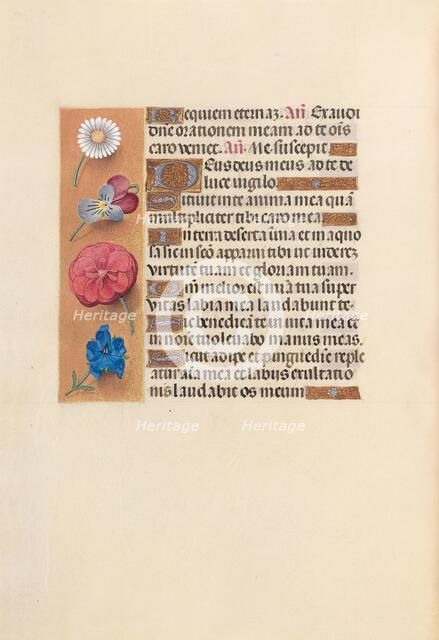 Requiem eternaz. Añ Exaudi
dñe orationem meam ad te oĩs
caro veniet. Añ. Me suscepit.
Deus deus meus ad te de
luce vigilo
Sitivit in te anima mea quã
multipliciter tibi caro mea
In terra deserta et invia et in aquo
sa sic in sc̃o apparui tibi ut viderẽ
virtutẽ tuam et gloriam tuam.
Qm̃ melior est mĩa tua super
vitas labia mea laudabunt te.
Sic benedicã te in vita mea et in
nõie tuo levabo manus meas.
Sicut adipe et pinguedĩe reple
atur aĩa mea et labijs exultatio
nis laudabit os meum
Heritage
Heritage
Heritage
Heritage
Heritage
Heritage